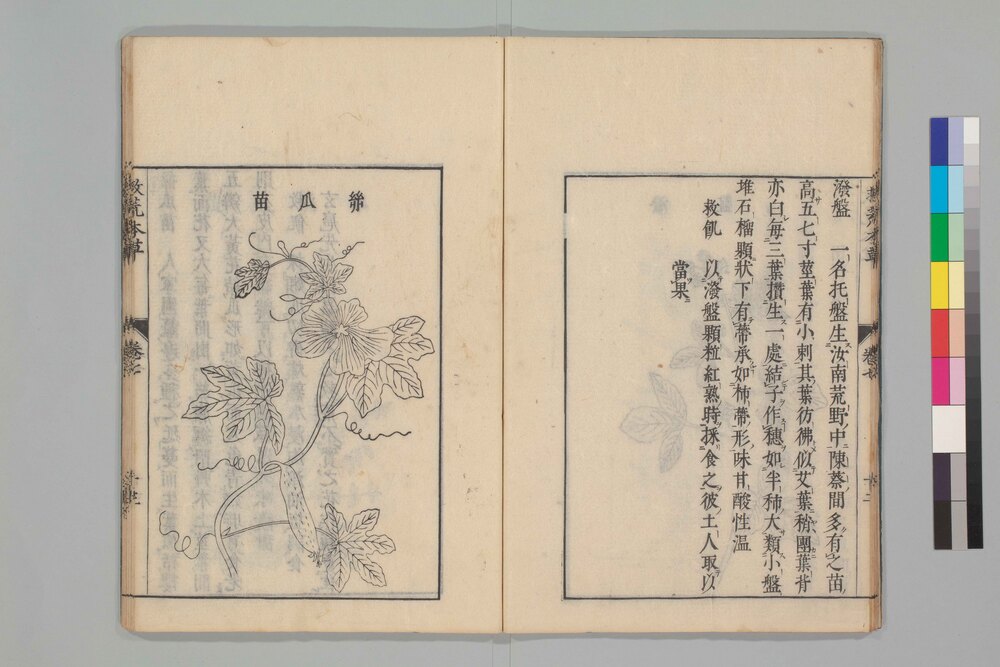 潑盤　一名托盤生汝南荒野中陳蔡間多有之苗
高五七寸莖葉有小刺其葉彷彿似艾葉稍團葉背
亦白每三葉攢生一處結子作穗如半柿大類小盤
堆石榴顆狀下有蔕承如柿蔕形味甘酸性溫
救飢　以潑盤顆粒紅熟時採食之彼土人取以
當果
絲瓜苗
救荒本草